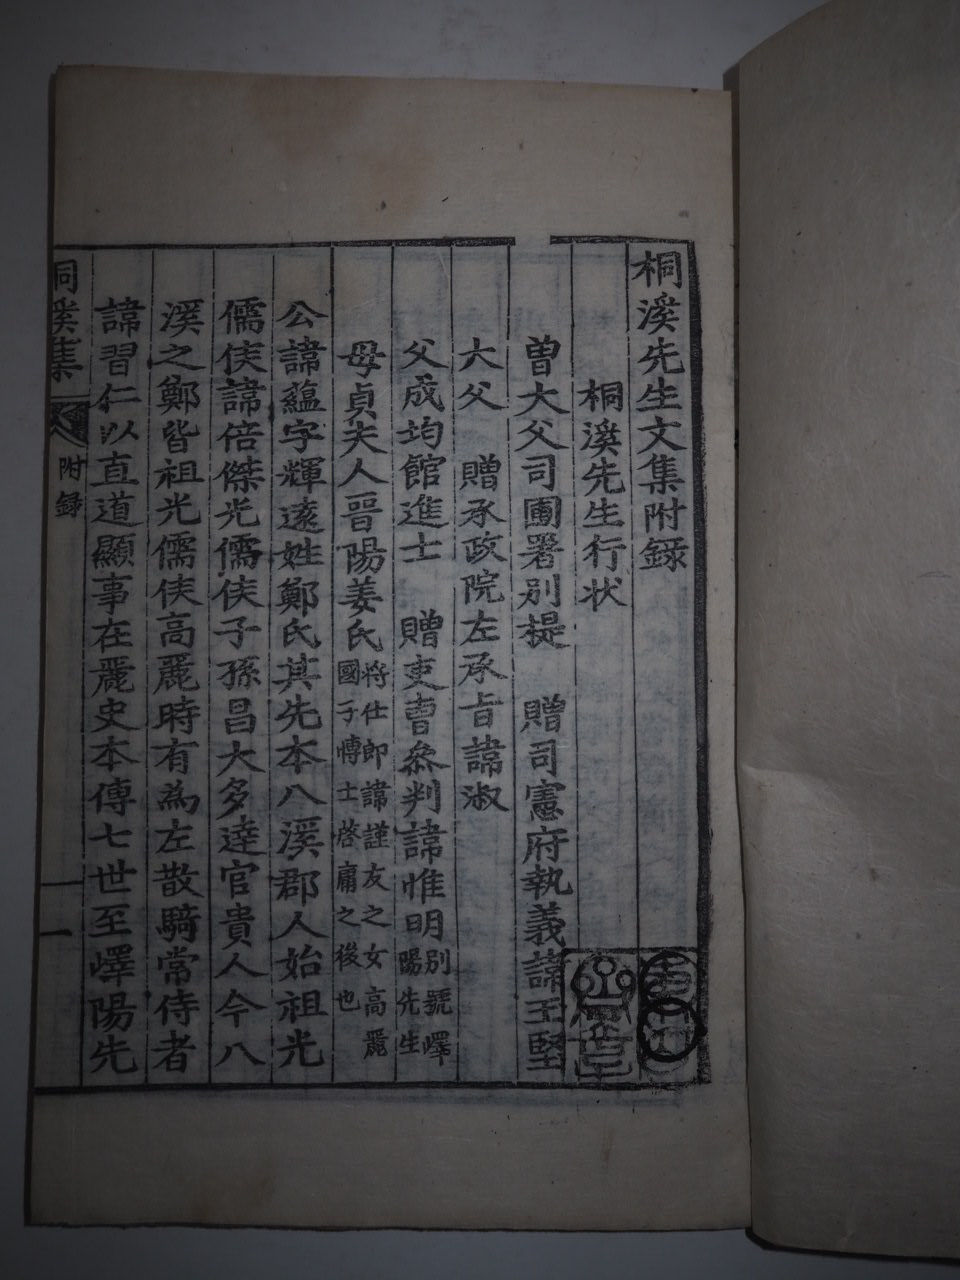 桐溪先生文集附録
桐溪先生行状
曽大父司圃署別提　贈司憲府執義諱玉堅
大父　贈承政院左承旨諱淑
父成均館進士　贈吏曹叅判諱惟明別號嶧陽先生
母貞夫人晉陽姜氏將仕郎諱謹友之女高麗國子博士啓庸之後也
公諱蘊字輝遠姓鄭氏其先本八溪郡人始祖光
儒侯諱倍傑光儒侯子孫昌大多達官貴人今八
溪之鄭皆祖光儒侯高麗時有為左散騎常侍者
諱習仁以直道顯事在麗史本傳七世至嶧陽先
桐溪集
附録
一